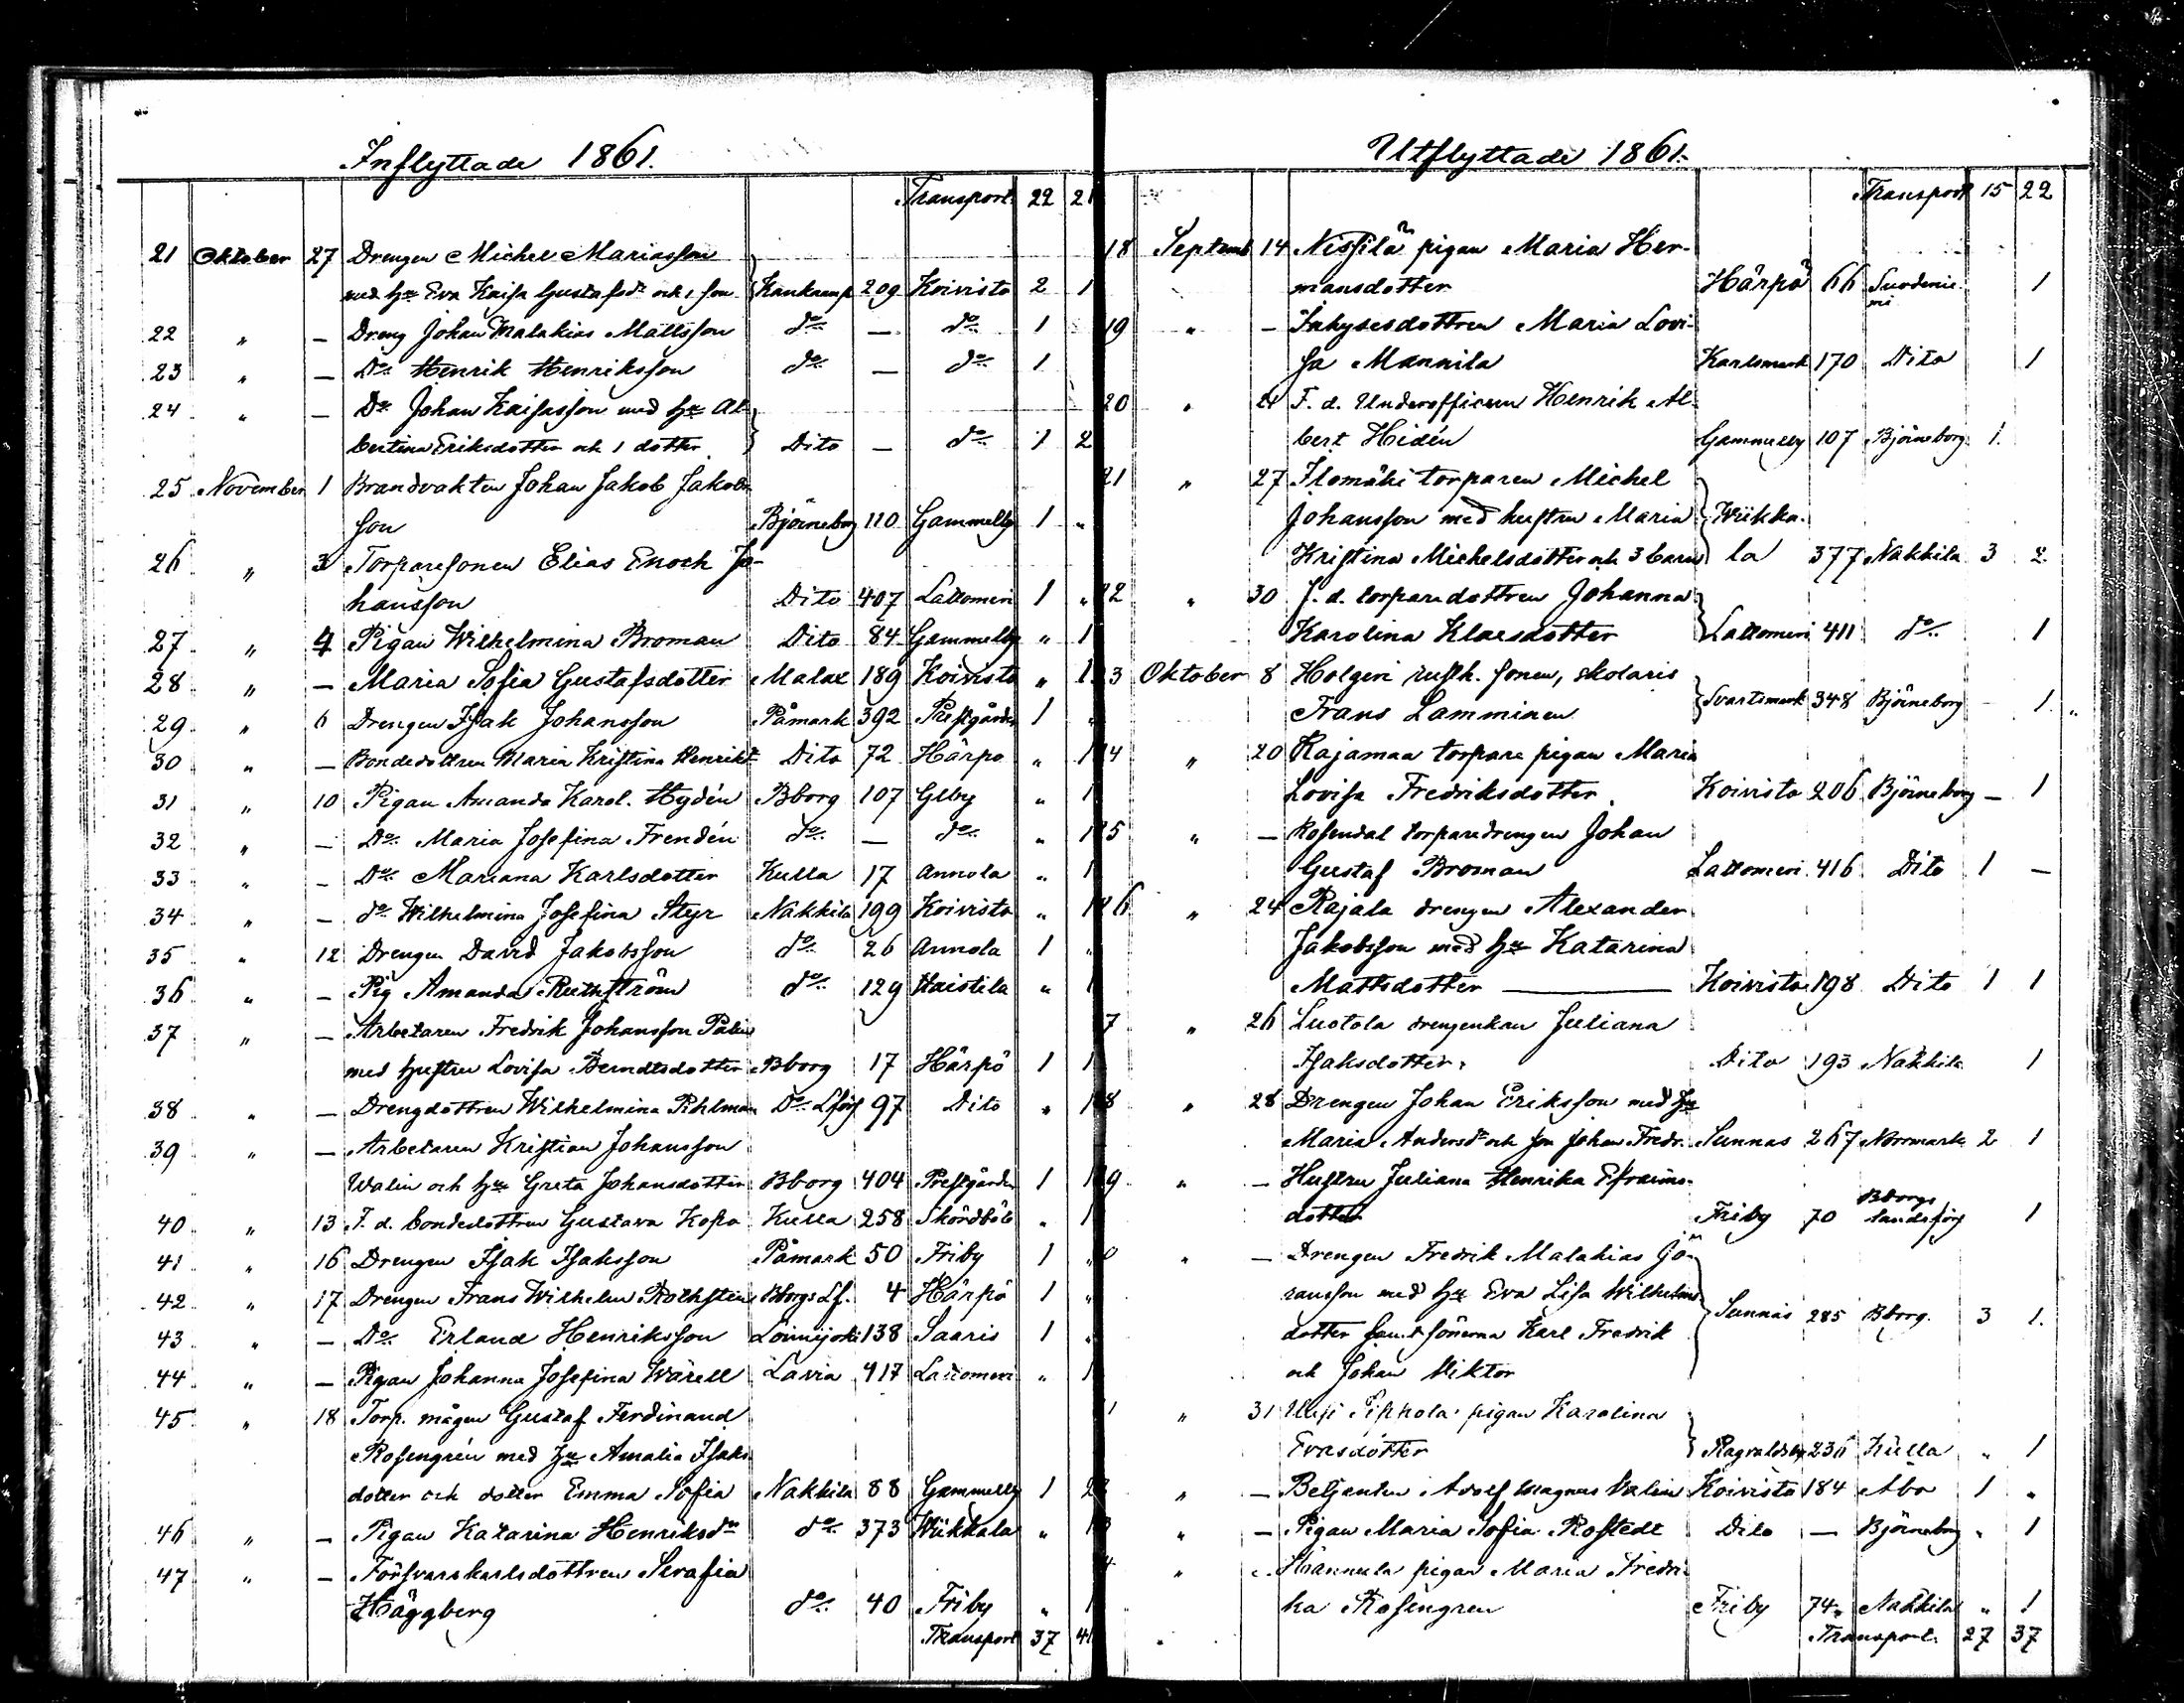 Inflyttade 1861.
Transport 22 21
21 Oktober 27 Drengen Michel Mariasson
med Hu Eva Kaisa Gustafsdr och 1 son Kankaanp 209 Koivisto 2 1
22 " — Dreng Johan Malakias Mattsson do — do 1
23 " — Do Henrik Henriksson do — do 1
24 " — Do Johan Kaisasson med Hu Al
bertina Eriksdotter och 1 dotter Dito — do 1 2
25 November 1 Brandvakten Johan Jakob Jakobs
son Björneborg 110 Gammelby 1 "
26 " 3 Torparesonen Elias Enoch Jo-
hansson Dito 407 Lattomeri 1 "
27 " 4 Pigan Wilhelmina Broman Dito 84 Gammelby " 1
28 " — Maria Sofia Gustafsdotter Malax 189 Koivisto " 1
29 " 6 Drengen Isak Johansson Påmark 392 Prestgården 1 "
30 " — Bondedottren Maria Kristina Henriksd Dito 72 Härpö " 1
31 " 10 Pigan Amanda Karol. Hydén Bborg 107 Glby " 1
32 " — Do Maria Josefina Frendén do — do " 1
33 " — Do Mariana Karlsdotter Kulla 17 Annola " 1
34 " — do Wilhelmina Josefina Styr Nakkila 199 Koivisto " 1
35 " 12 Drengen David Jakobsson do 26 Annola 1 "
36 " — Pig Amanda Ruthström do 129 Haistila " 1
37 " — Arbetaren Fredrik Johansson Palin
med hustru Lovisa Berndtsdotter Bborg 17 Härpö 1 1
38 " — Drengdottren Wilhelmina Pihlman Do Lförs 97 Dito " 1
39 " — Arbetaren Kristian Johansson
Walin och Hu Greta Johansdotter Bborg 404 Prestgården 1 1
40 " 13 F. d. bondedottren Gustava Kosta Kulla 258 Skördböle " 1
41 " 16 Drengen Isak Isaksson Påmark 50 Friby 1 "
42 " 17 Drengen Frans Wilhelm Rothsten Bborgs Lf. 4 Härpö 1 "
43 " — Do Erland Henriksson Loimijoki 138 Saaris 1 "
44 " — Pigan Johanna Josefina Wärell Lavia 417 Lattomeri " 1
45 " 18 Torp. mågen Gustaf Ferdinand
Rosengrén med Hu Amalia Isaks
dotter och dotter Emma Sofia Nakkila 88 Gammelby 1 2
46 " — Pigan Katarina Henriksdr do 373 Wiikkala " 1
47 " — Försvarskarlsdottren Serafia
Häggberg do 40 Friby " 1
Transport 37 41
Utflyttade 1861.
Transport 15 22
18 Septemb 14 Nissilä pigan Maria Her-
mansdotter Härpö 66 Suodenie-
mi 1
19 " — Inhysesdottren Maria Lovi-
sa Mannila Karlsmark 170 Dito 1
20 " 21 F. d. Underofficeren Henrik Al-
bert Hidén Gammelby 107 Björneborg 1
21 " 27 Ilomäki torparen Michel
Johansson med hustru Maria Wiikka-
Kristina Michelsdotter och 3 barn la 377 Nakkila 3 2
22 " 30 F. d. torparedottren Johanna
Karolina Klaesdotter Lattomeri 411 do 1
3 Oktober 8 Holgeri rusth. sonen, skolaris
Frans Lamminen Svartsmark 348 Björneborg — 1
4 " 20 Rajamaa torpare pigan Maria
Lovisa Fredriksdotter Koivisto 206 Björneborg — 1
5 " — Rosendal torparedrengen Johan
Gustaf Broman Lattomeri 416 Dito 1 —
6 " 24 Rajala drengen Alexander
Jakobsson med Hu Katarina
Mattsdotter — Koivisto 198 Dito 1 1
7 " 26 Luotola drengenkan Juliana
Isaksdotter Dito 193 Nakkila 1
8 " 28 Drengen Johan Eriksson med Hu
Maria Andersdr och son Johan Fredr. Sunnäs 267 Norrmark 2 1
9 " — Hustru Juliana Henrika Efraims-
dotter Friby 70 Bborgs landsförs 1
0 " — Drengen Fredrik Malakias Gö-
ransson med Hu Eva Lisa Wilhelms
dotter samt sönerna Karl Fredrik Sunnäs 285 Bborg. 3 1
och Johan Viktor
1 " 31 Uusi Pihkola pigan Karolina
Evasdotter Ragvaldsby 236 Kulla " 1
" — Betjenten Adolf Magnus Valin Koivisto 184 Åbo 1 "
" — Pigan Maria Sofia Rostedt Dito — Björneborg " 1
4 " — Hannula pigan Maria Fredri-
ka Rosengren Friby 74 Nakkila " 1
Transport 27 37